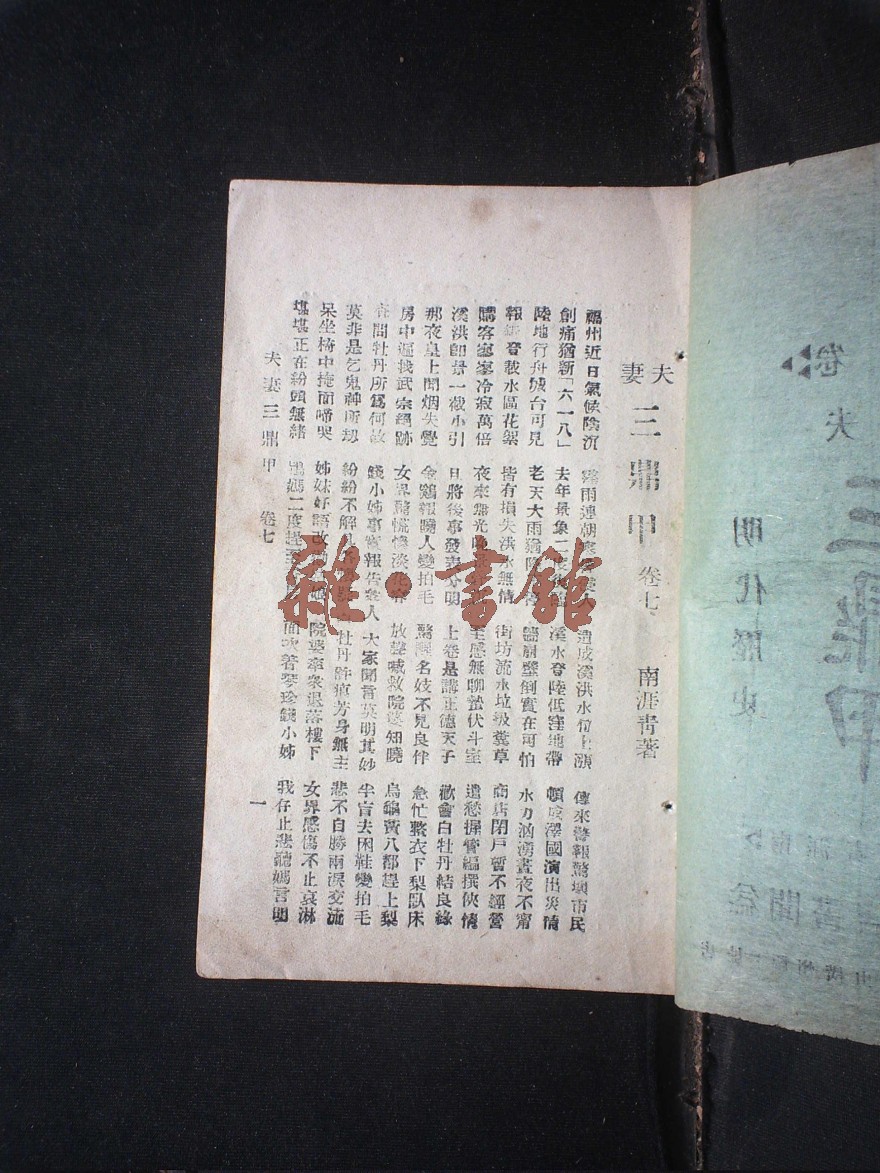 夫妻三鼎甲 卷七 南涯青著
福州近日氣候陰沉 霪雨連朝 造成溪洪水位上漲 傳來警報驚壞市民
創痛猶新「六一八」 去年景象二 溪水登陸低窪地帶 頓成澤國演出災情
陸地行舟城台可見 老天大雨猶 牆崩壁倒實在可怕 水力汹湧晝夜不甯
報 登載水區花絮 皆有損失洪水無情 街坊流水垃圾糞草 商店閉戶暫不經營
購客寥寥冷寂萬倍 夜來無光 至感無聊蟄伏斗室 遣愁握管編撰俠情
溪洪卽景一 小引 且將後事發表分明 上卷是講正德天子 歡會白牡丹結良緣
那夜皇上聞烟失覺 金鷄報曉人變拍毛 驚醒名妓不見良伴 急忙 衣下梨臥床
房中遍找武宗絕跡 女界驚慌慘淡花容 放聲喊救院婆知曉 烏龜黃八都趕上梨
查問牡丹所爲何故 錢小姊事實報告衆人 大家聞言莫明其妙 半盲去困鞋變拍毛
莫非是乞鬼神所刼 紛紛不解 牡丹 芳身無主 悲不自勝兩淚交流
呆坐椅中掩面啼哭 姊妹好語 院婆率衆退落樓下 女界感傷不止哀淋
堪堪正在紛頭無緒 鴇媽二度趕至 面 着琴珍錢小姊 我仔止悲聽媽言明
夫妻三鼎甲 卷七 一
雜·書館
卷
夫
三鼎甲
明代歷史